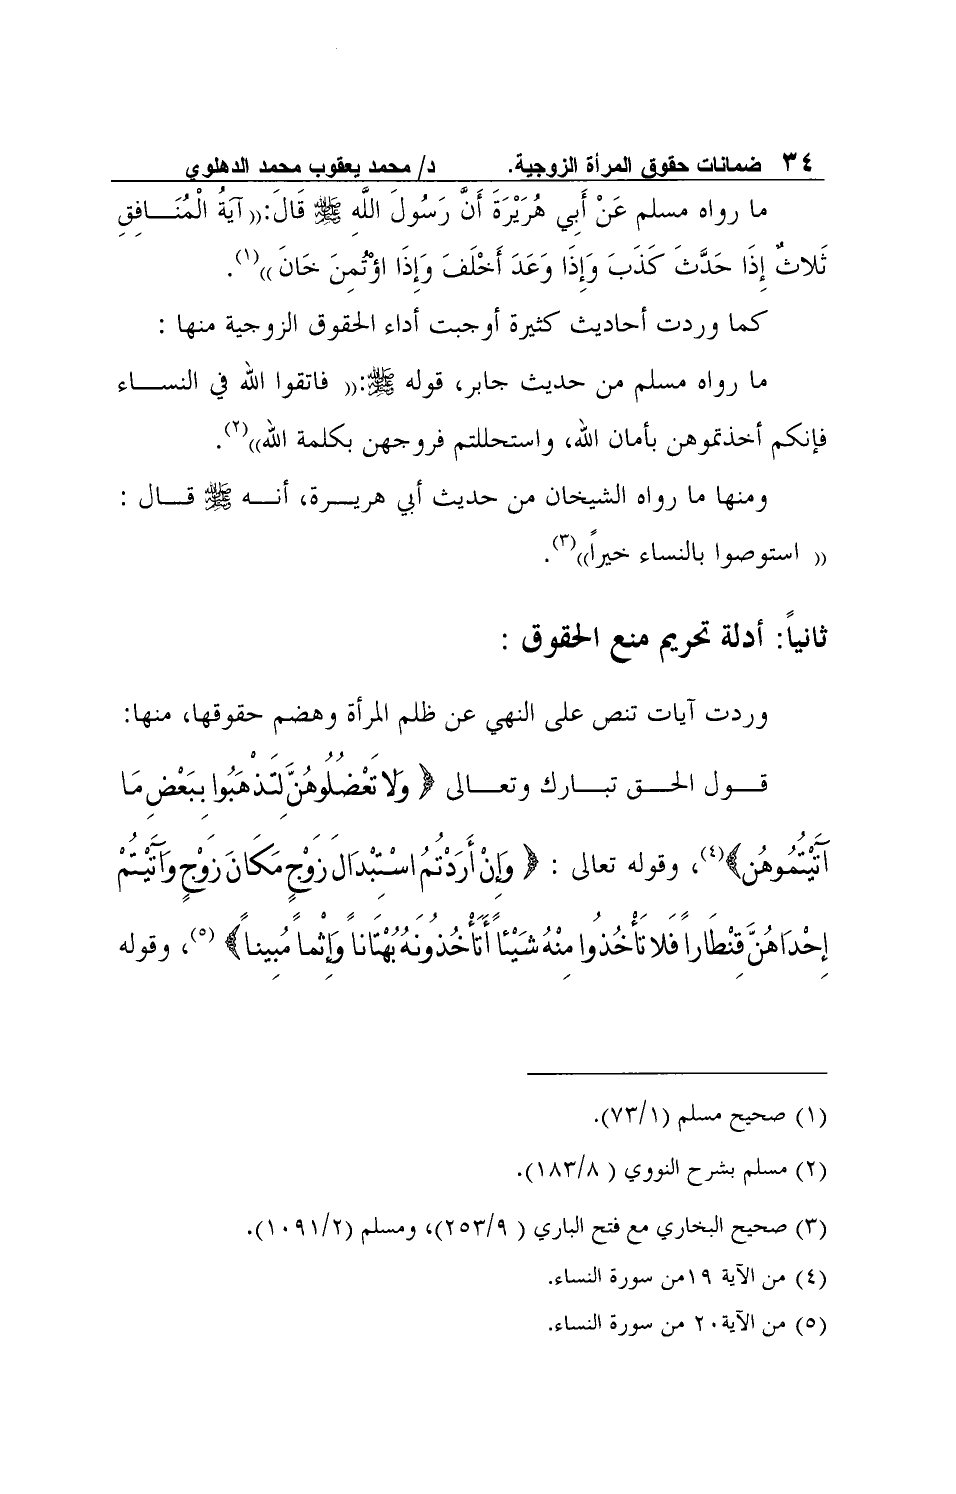 ٣٤ ضمانات حقوق المرأة الزوجية. د/ محمد يعقوب محمد الدهلوي
ما رواه مسلم عَنْ أَبِي هُرَيْرَةَ أَنَّ رَسُولَ اللَّهِ ﷺ قَالَ:(( آيَةُ الْمُنَافِقِ
ثَلاثٌ إِذَا حَدَّثَ كَذَبَ وَإِذَا وَعَدَ أَخْلَفَ وَإِذَا اؤْتُمِنَ خَانَ ))(١).
كما وردت أحاديث كثيرة أوجبت أداء الحقوق الزوجية منها :
ما رواه مسلم من حديث جابر، قوله ﷺ:(( فاتقوا الله في النساء
فإنكم أخذتموهن بأمان الله، واستحللتم فروجهن بكلمة الله))(٢).
ومنها ما رواه الشيخان من حديث أبي هريرة، أنه ﷺ قال :
(( استوصوا بالنساء خيراً))(٣).
ثانياً: أدلة تحريم منع الحقوق :
وردت آيات تنص على النهي عن ظلم المرأة وهضم حقوقها، منها:
قول الحق تبارك وتعالى ﴿ وَلَا تَعْضُلُوهُنَّ لِتَذْهَبُوا بِبَعْضِ مَا
آتَيْتُمُوهُن﴾(٤)، وقوله تعالى : ﴿ وَإِنْ أَرَدْتُمُ اسْتِبْدَالَ زَوْجٍ مَكَانَ زَوْجٍ وَآتَيْتُمْ
إِحْدَاهُنَّ قِنْطَاراً فَلا تَأْخُذُوا مِنْهُ شَيْئاً أَتَأْخُذُونَهُ بُهْتَاناً وَإِثْماً مُبِيناً﴾ (٥)، وقوله
(١) صحيح مسلم (٧٣/١).
(٢) مسلم بشرح النووي ( ١٨٣/٨).
(٣) صحيح البخاري مع فتح الباري ( ٢٥٣/٩)، ومسلم (١٠٩١/٢).
(٤) من الآية ١٩من سورة النساء.
(٥) من الآية٢٠ من سورة النساء.